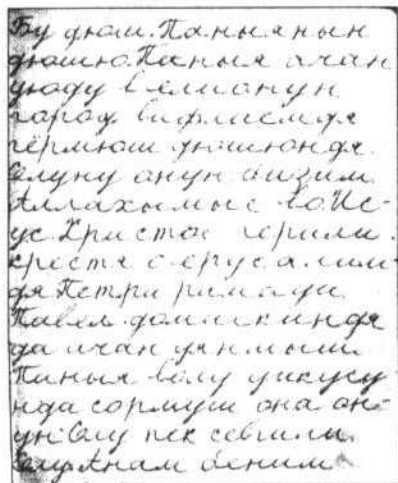 Бу дюш. Паныя нын
дюшю. Паныя ачан
уюду в елионун
город вифлиемдя
гермюш дюшюндя
Олуну онун бизим
Аллахымыс Го. Ис-
ус. Христос герили
крестя ерусалим-
дя Петри римади
Павел домаскиндя
да ачан уянмыш
Паныя уикусу
нда сормуш она он-
ун Олу пек севгили
Олу Анам беним